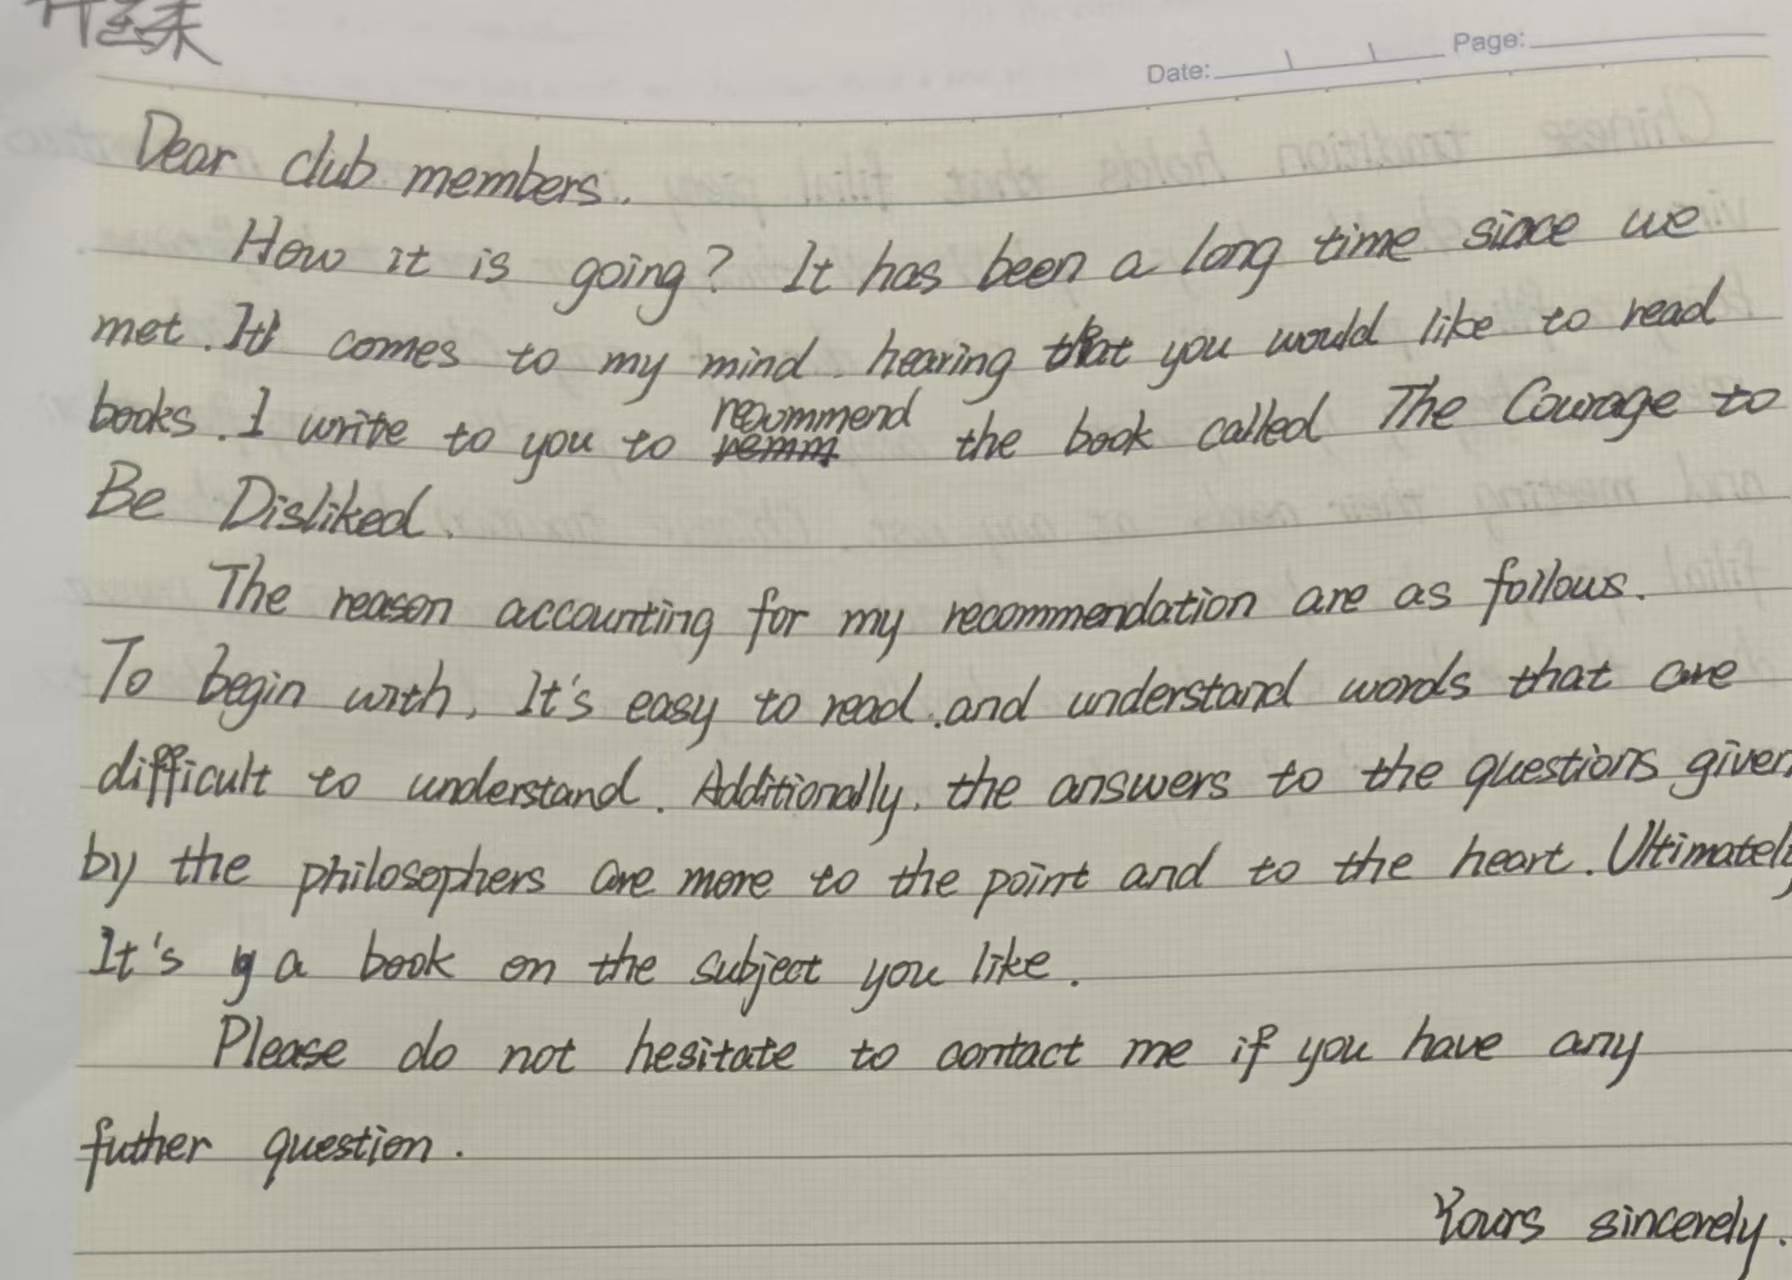 Date: Page:
Dear club members.
How it is going? It has been a long time since we
met. It comes to my mind. hearing that you would like to read
books. I write to you to recommend the book called The Courage to
Be Disliked.
The reason accounting for my recommendation are as follows.
To begin with, It's easy to read. and understand words that are
difficult to understand. Additionally, the answers to the questions given
by the philosophers are more to the point and to the heart. Ultimately
It's a book on the subject you like.
Please do not hesitate to contact me if you have any
futher question.
Yours sincerely.